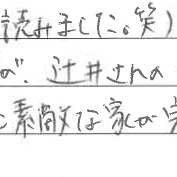 読みました。笑)
が、辻井さんの
素敵な家が完